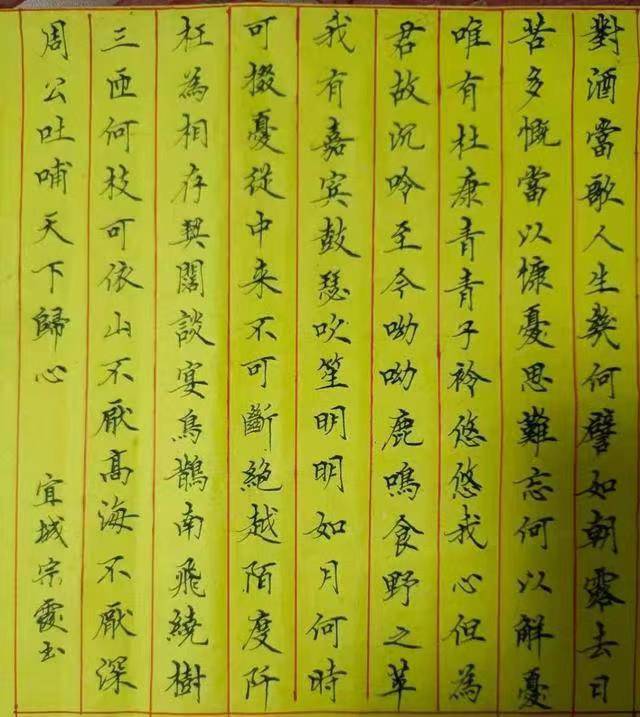 對酒當歌人生幾何譬如朝露去日
苦多慨當以慷憂思難忘何以解憂
唯有杜康青青子衿悠悠我心但為
君故沉吟至今呦呦鹿鳴食野之苹
我有嘉賓鼓瑟吹笙明明如月何時
可掇憂從中来不可斷絕越陌度阡
枉為相存契闊談宴鳥鵲南飛繞樹
三匝何枝可依山不厭高海不厭深
周公吐哺天下歸心 宜城宗霞书